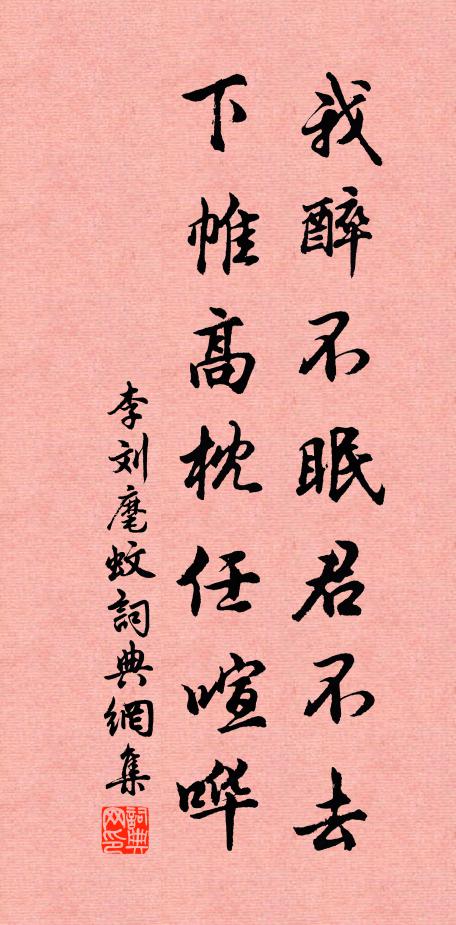 我醉不眠君不去
下帷高枕任喧哗
李刘麾蚊詞典網集
詞典网印